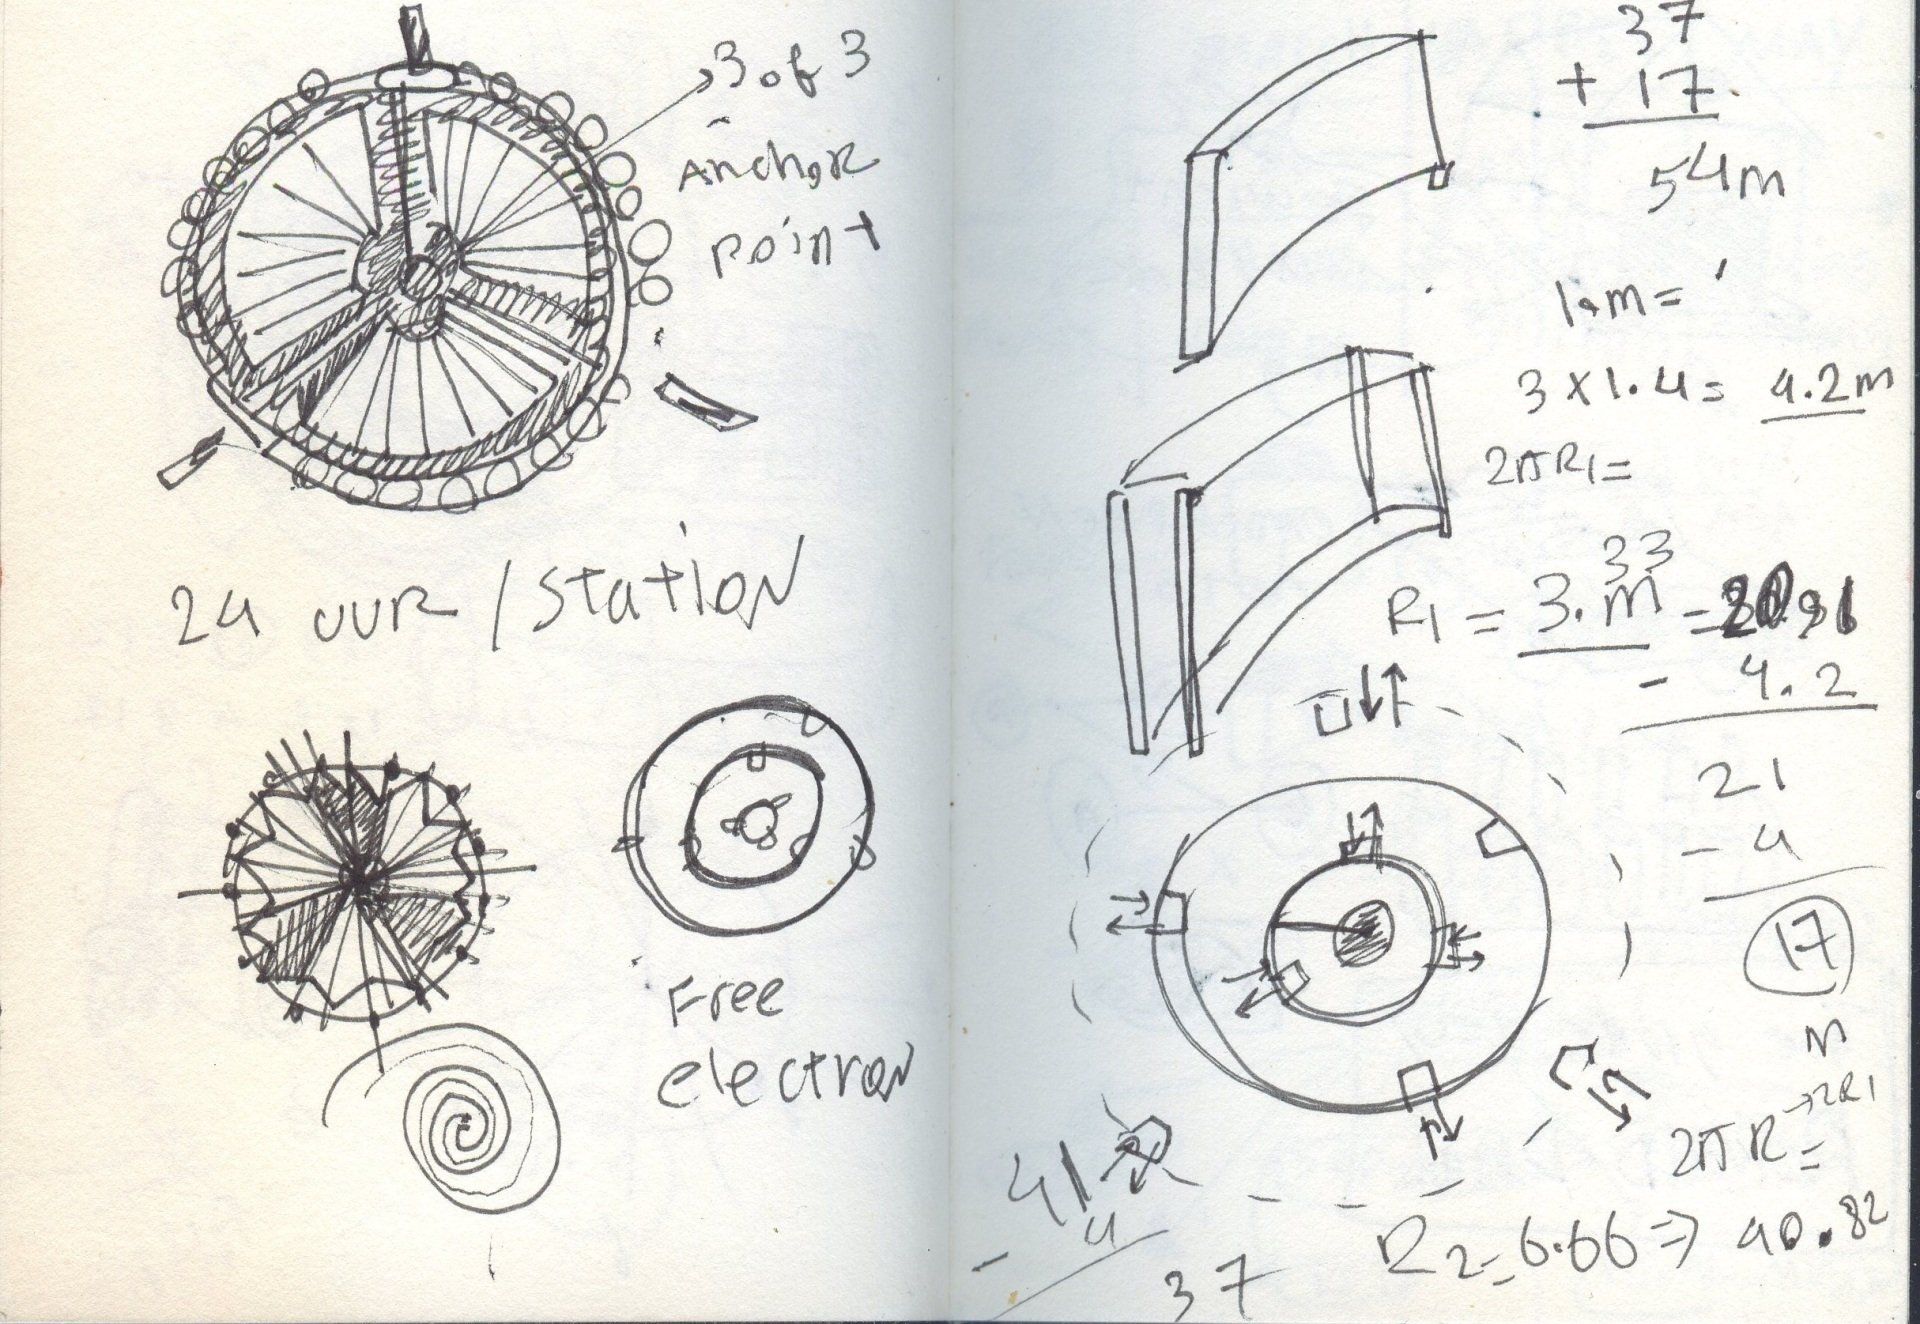 3 of 3
Anchor
point
24 uur / station
Free
electron
37
+ 17
54m
1.m =
3 x 1.4 = 4.2m
2πR1 =
R1 = 3.33m =
- 4.2
21
- 4
17
m
2πR → 2R1
=
R2 = 6.66 => 40.82
41
- 4
37